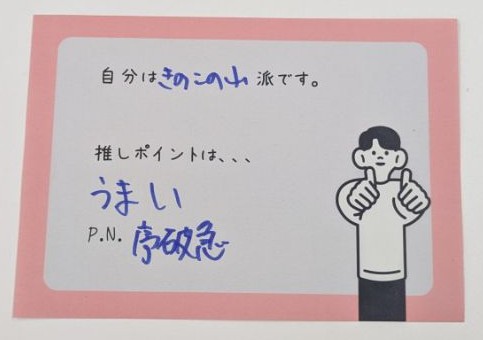 自分はきのこの山派です。
推しポイントは、、、
うまい
P.N. 序破急